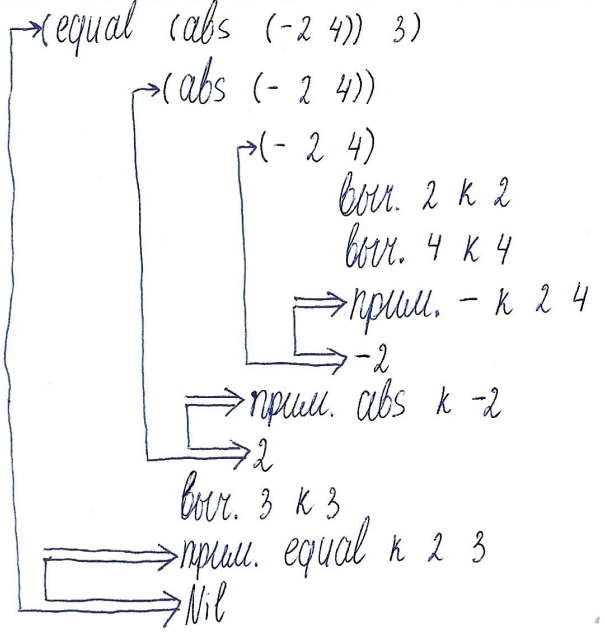 (equal (abs (-2 4)) 3)
(abs (- 2 4))
(- 2 4)
выч. 2 к 2
выч. 4 к 4
прим. - к 2 4
-2
прим. abs к -2
2
выч. 3 к 3
прим. equal к 2 3
Nil